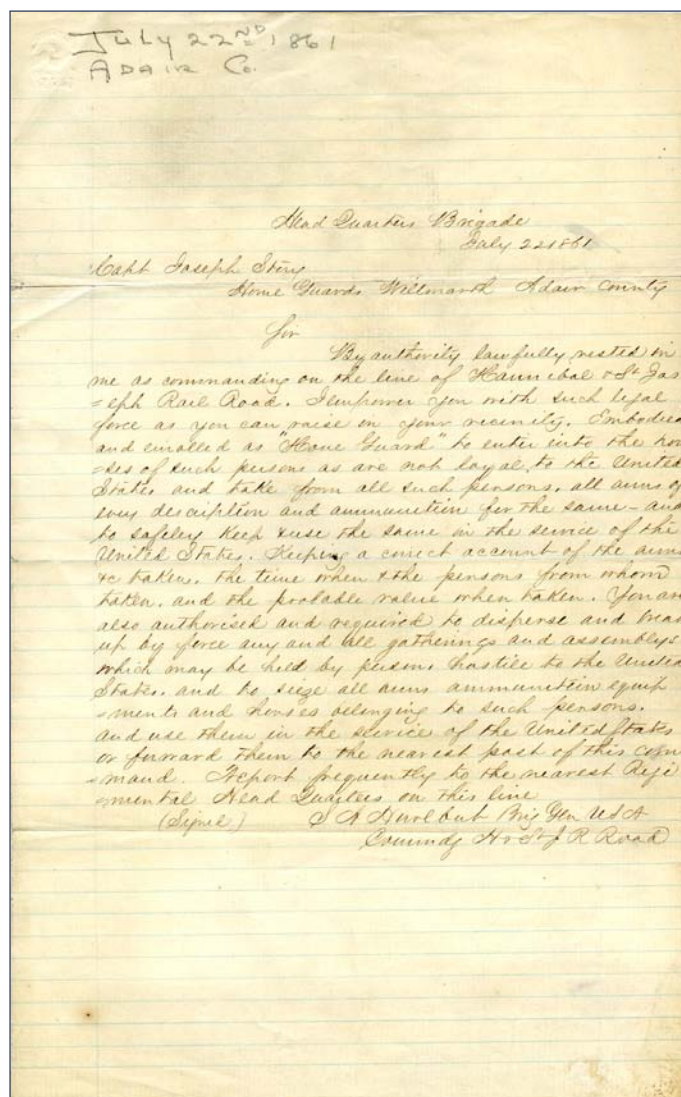 JULY 22ND, 1861
ADAIR Co.
Head Quarters Brigade
July 22 1861
Capt Joseph Story
Home Guards Willmarth Adair County
Sir
By authority lawfully vested in
me as commanding on the line of Hannibal & St Jos
=eph Rail Road. I empower you with such legal
force as you can raise in your vicinity. Embodied
and enrolled as "Home Guard" to enter into the hou
=ses of such persons as are not loyal, to the United
States and take from all such persons, all arms of
every description and ammunition for the same - and
to safeley keep & use the same in the service of the
United States. Keeping a correct account of the arms
&c taken, the time when & the persons from whom
taken, and the probable value when taken. You are
also authorised and required to disperse and break
up by force any and all gatherings and assemblys
which may be held by persons hostile to the United
States. and to seize all arms ammunition equip
=ments and horses belonging to such persons.
and use them in the service of the United States
or forward them to the nearest post of this com
=mand. Report frequently to the nearest Regi
=mental Head Quarters on this line
(Signed) S A Hurlbut Brig Gen USA
Commdg H & St J R Road